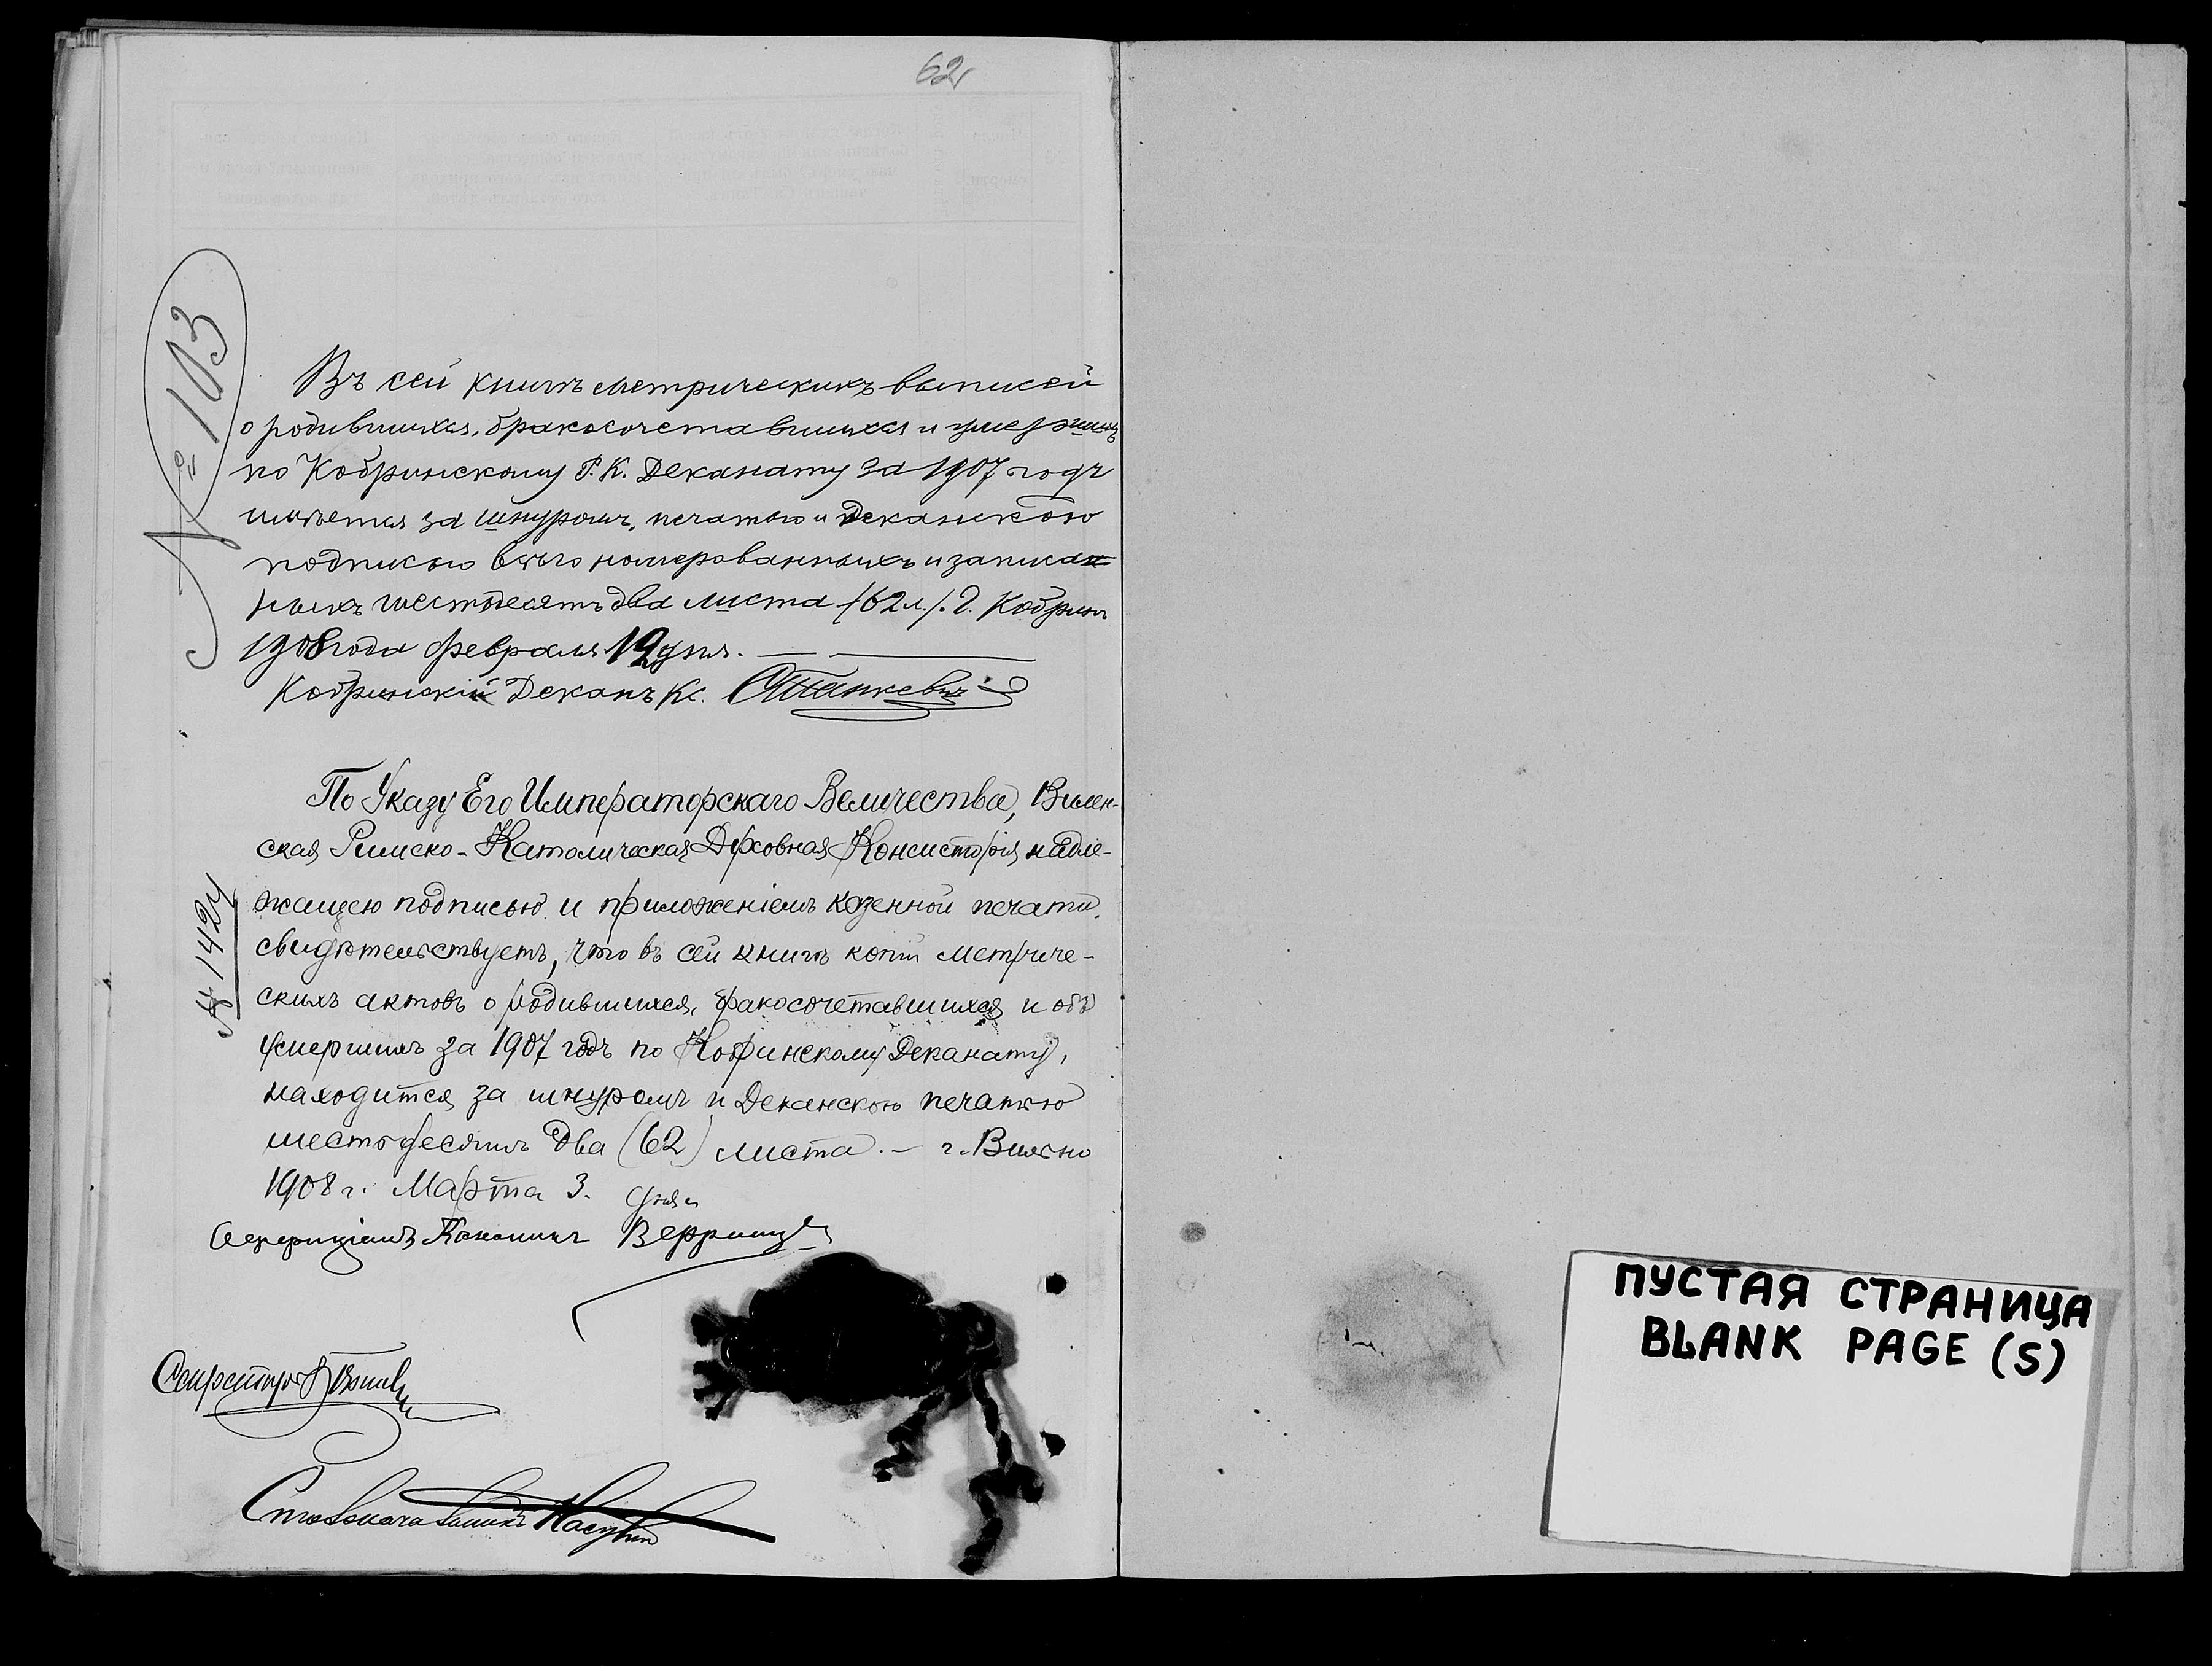 62
№ 103
Въ сей книгѣ метрическихъ выписей
о родившихся, бракосочетавшихся и умершихъ
по Кобринскому Р. К. Деканату за 1907 годъ
имѣется за шнуромъ, печатью и Деканскою
подписью всего номерованныхъ и записан
ныхъ шестьдесятъ два листа /62 л./. Г. Кобринъ
1908 года февраля 12 дня.
Кобринскій Деканъ Кс.
По Указу Его Императорскаго Величества, Вилен-
ская Римско-Католическая Духовная Консисторія надле-
жащею подписью и приложеніемъ казенной печати,
свидѣтельствуетъ, что въ сей книгѣ копій метриче-
скихъ актовъ о родившихся, бракосочетавшихся и объ
умершихъ за 1907 годъ по Кобринскому Деканату,
находится за шнуромъ и Деканскою печатью
шестьдесятъ два (62) листа. — г. Вильно
1908 г. Марта 3. дня
№ 1424
Каноникъ
Секретарь
Столоначальникъ
ПУСТАЯ СТРАНИЦА
BLANK PAGE (S)